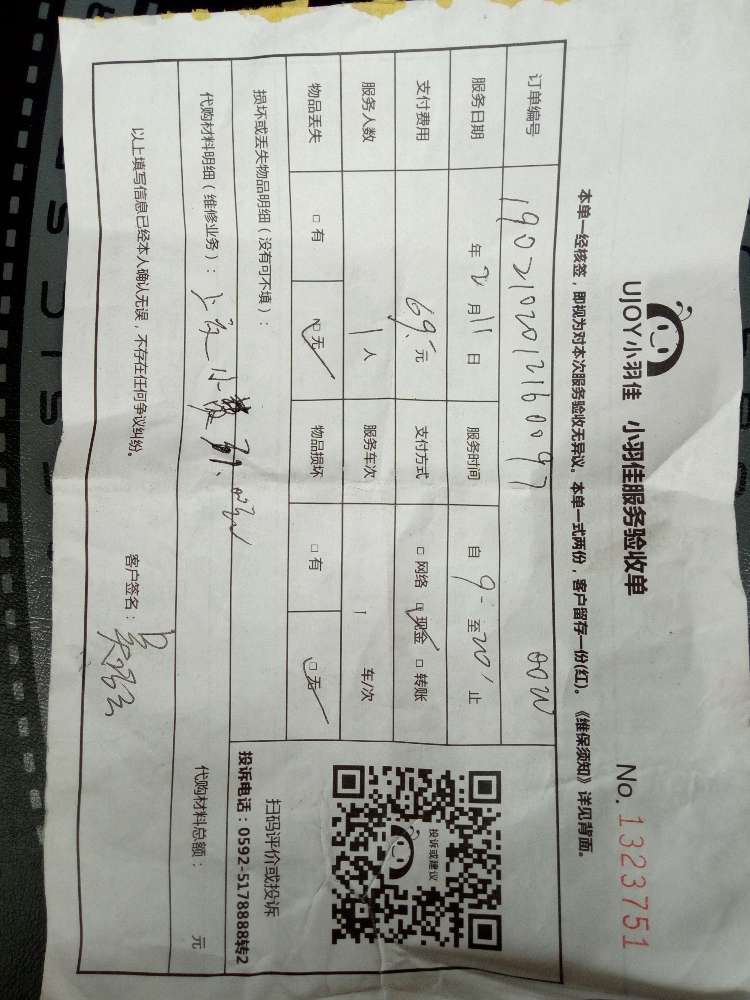 UJOY小羽佳 小羽佳服务验收单 No. 1323751
本单一经核签，即视为对本次服务验收无异议。本单一式两份，客户留存一份(红)。《维保须知》详见背面。
订单编号 1902102012160097
服务日期 年 2 月 11 日 服务时间 自 9 至 20 止
支付费用 69 元 支付方式 □ 网络 □ 现金 □ 转账
服务人数 1 人 服务车次 1 车/次
物品丢失 □ 有 □ 无 物品损坏 □ 有 □ 无
损坏或丢失物品明细（没有可不填）：
代购材料明细（维修业务）： 代购材料总额： 元
以上填写信息已经本人确认无误，不存在任何争议纠纷。 客户签名：
投诉或建议
扫码评价或投诉
投诉电话：0592-5178888转2